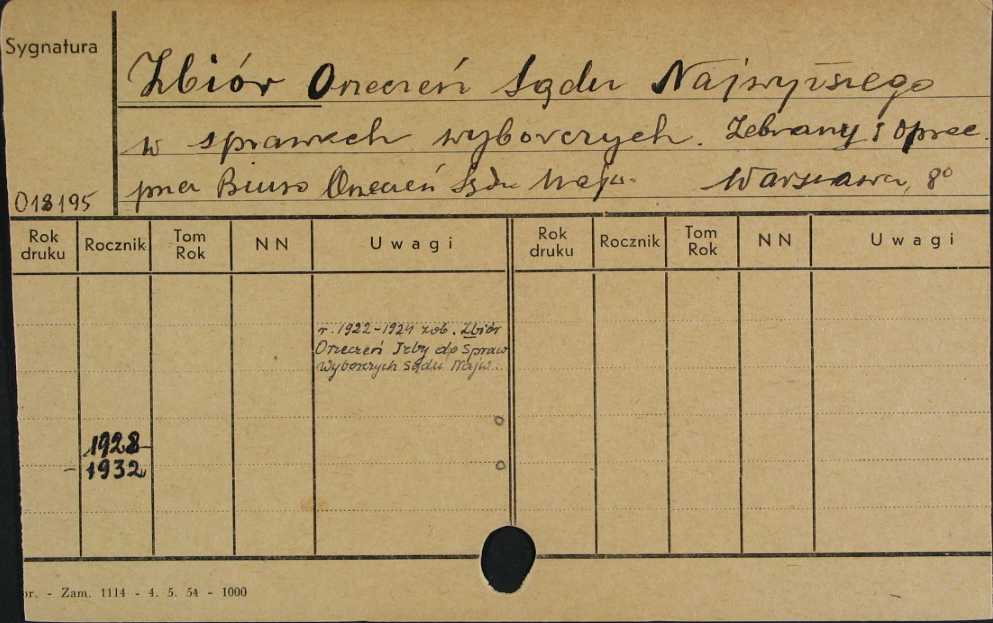 Sygnatura
Zbiór Orzeczeń Sądu Najwyższego
w sprawach wyborczych. Zebrany i oprac.
przez Biuro Orzeczeń Sądu Najw. Warszawa, 8°
018195
Rok druku Rocznik Tom Rok NN Uwagi Rok druku Rocznik Tom Rok NN Uwagi
r. 1922-1924 zob. Zbiór
Orzeczeń Izby dp Spraw
Wyborczych Sądu Najw..
1928-
- 1932
or. - Zam. 1114 - 4. 5. 54 - 1000